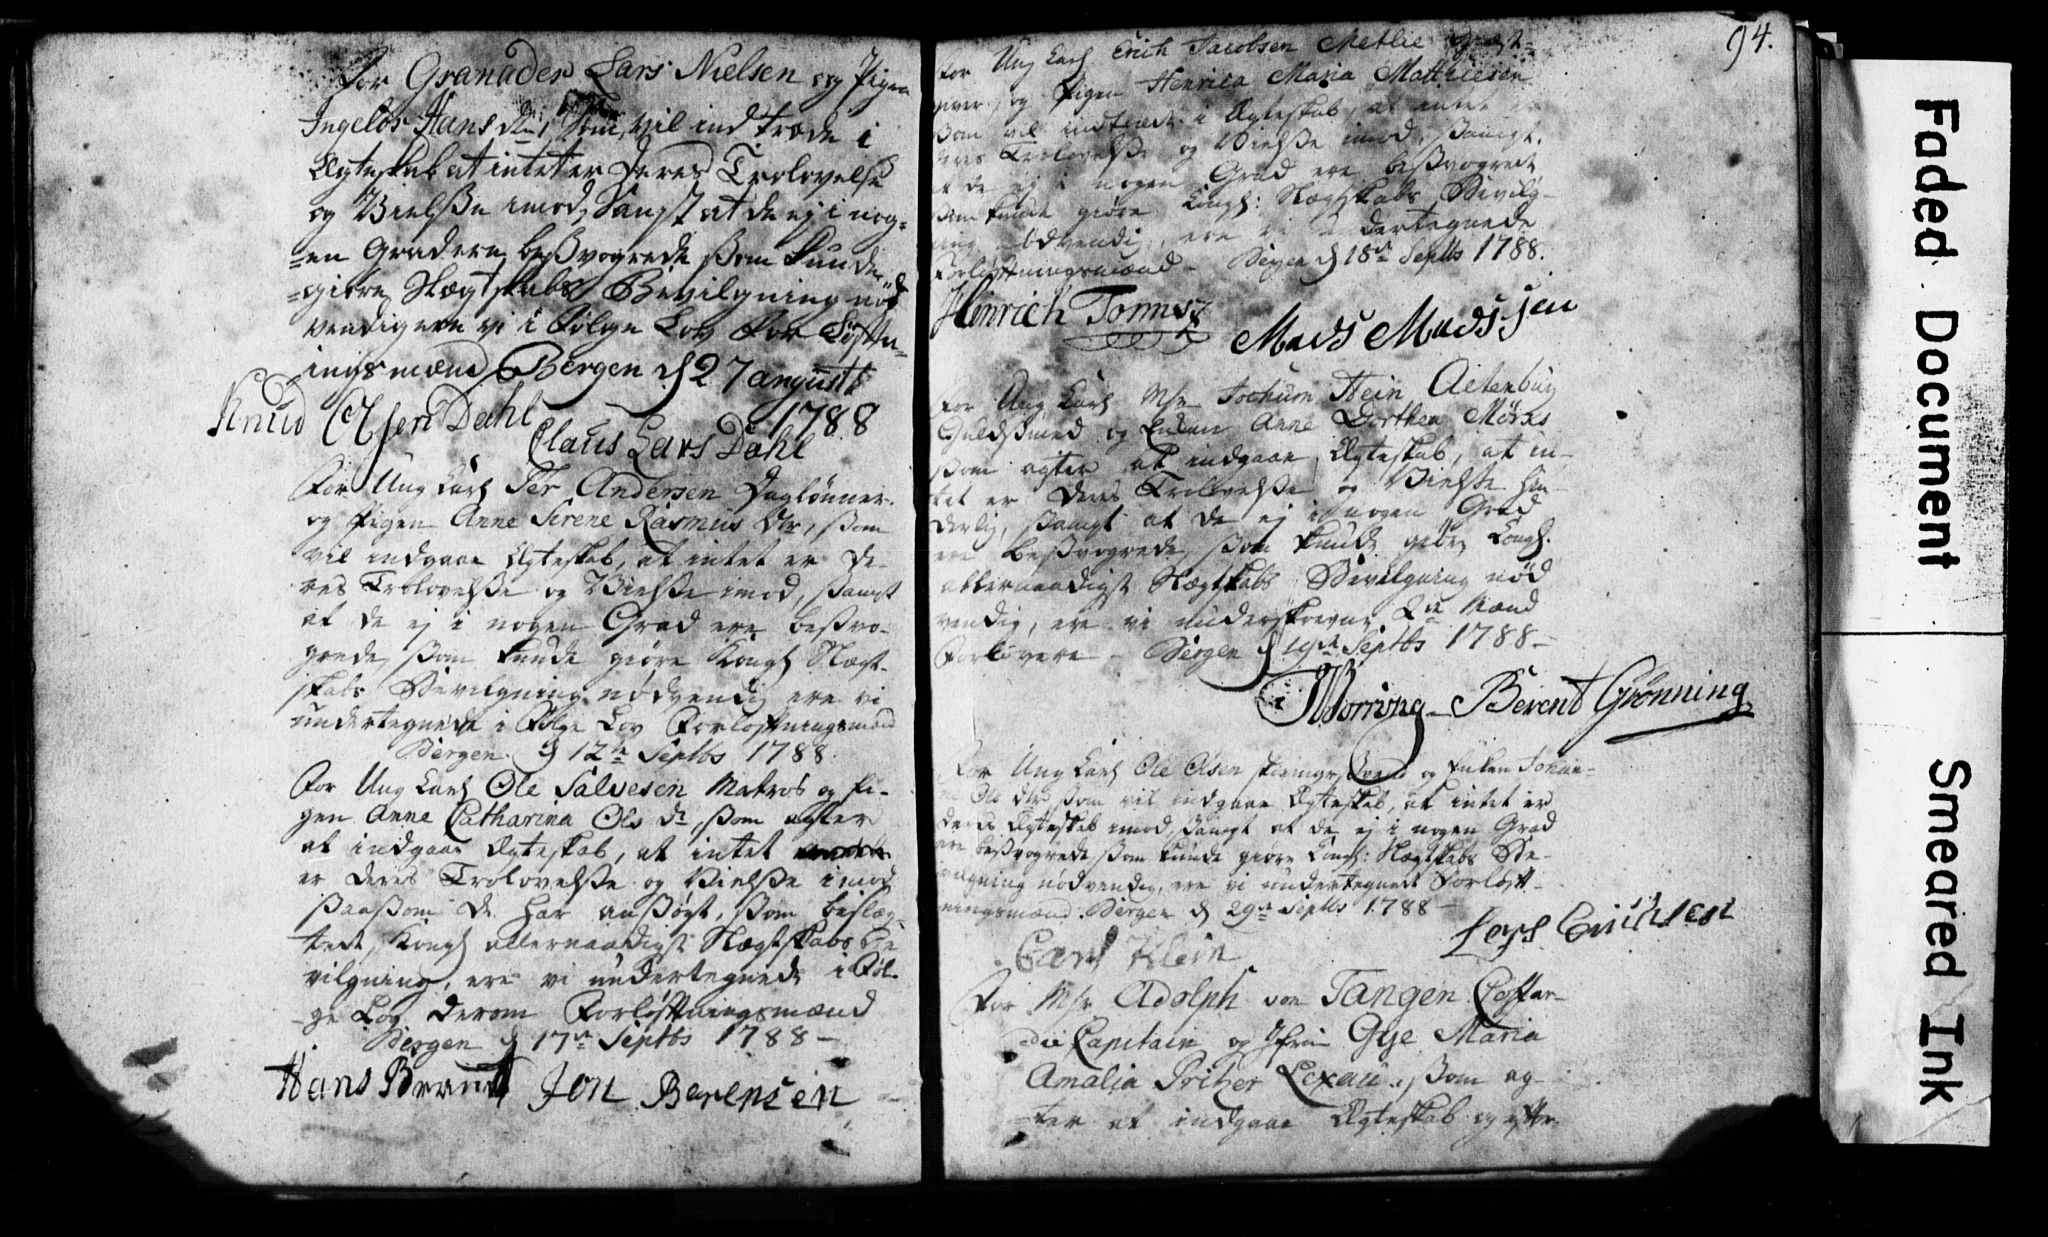 For Granader Lars Nielsen og Pigen
Ingebor Hans dr, som vil indtræde i
Ægteskab at intet er deres Trolovelse
og Vielsse imod, Sampt at de ej i nog-
-en Grad ere besvogrede ssom kunde
-giøre Slægtskabs Bevilgning nød
vendig ere vi i Følge Lov For Løftn-
ings mænd Bergen d 27 august
1788
Knud Olsen Dahl
Claus Lars Dahl
For Ung Karl Per Andersen Daglønner
og Pigen Anne Sirene Rasmus Dtr, ssom
vil indgaae Ægteskab, at intet er de-
res Trolovelsse og Vielsse imod, ssampt
at de ej i nogen Grad ere bessvo-
grede, ssom kunde giøre Kongl Slægt-
skabs Bevilgning nødvendig ere vi
undertegnede i Følge Lov Forløftningsmænd
Bergen d 12te Septbr 1788.
For Ung Karl Ole Salvesen Matros og Pi-
gen Anne Catharina Ols dr, ssom agter
at indgaae Ægteskab, at intet
er deres Trolovelsse og Vielsse imod
ssaassom de har anssøgt, ssom beslæg-
tede, Kongl allernaadigst Slægtskabs Be
vilgning, ere vi undertegnede i Føl-
-ge Lov derom Forløftningsmænd
Bergen d 17de Septbr 1788 -
Hans Brandt Jon Berensen
94.
For Ung Karl Erich Jacobsen Metlie Giest-
giver, og Pigen Henrica Maria Matthiesen
ssom vil indtræde i Ægteskab, at intet er
deres Trolovelsse og Vielsse imod, ssampt.
at de ej i nogen Grad ere bessvogrede
ssom kunde giøre Kongl: Slægtskabs Bevilg-
ning nødvendig, ere vi undertegnede
Forløftningsmænd - Bergen d 18de Septbr 1788.
Hinrich Tonnis
Mads Madssen
For Ung Karl Msr Jochum Stein Aetenbug
Guldssmed og Enken Anne Dorthea Mørns
ssom agter at indgaae Ægteskab, at in-
tet er deres Trolovelsse og Vielsse hin-
derlig, ssampt at de ej i nogen Grad
ere bessvogrede, ssom kunde giøre Kongl.
allernaadigst Slægtskabs Bevilgning nød
vendig, ere vi underskrevne 2de Mænd
Forlovere - Bergen d 19de Septbr 1788 -
Berent Grønning
For Ung Karl Ole Olsen og Enken Johan-
ne Ols dtr, ssom vil indgaae Ægteskab, at intet er
deres Ægteskab imod, ssampt at de ej i nogen Grad
ere bessvogrede ssom kunde giøre Kongl: Slægtskabs Be-
vilgning nødvendig, ere vi undertegnede Forløft-
ningsmænd Bergen d 29de Septbr 1788 -
Lars Erichsen
Carl Klein
For Msr Adolph von Tangen Coffar-
-die Capitain og Jfru Gye Maria
Amalia Pritzer Lexau, ssom ag-
-ter at indgaae Ægteskab og efter
Faded Document
Smeared Ink